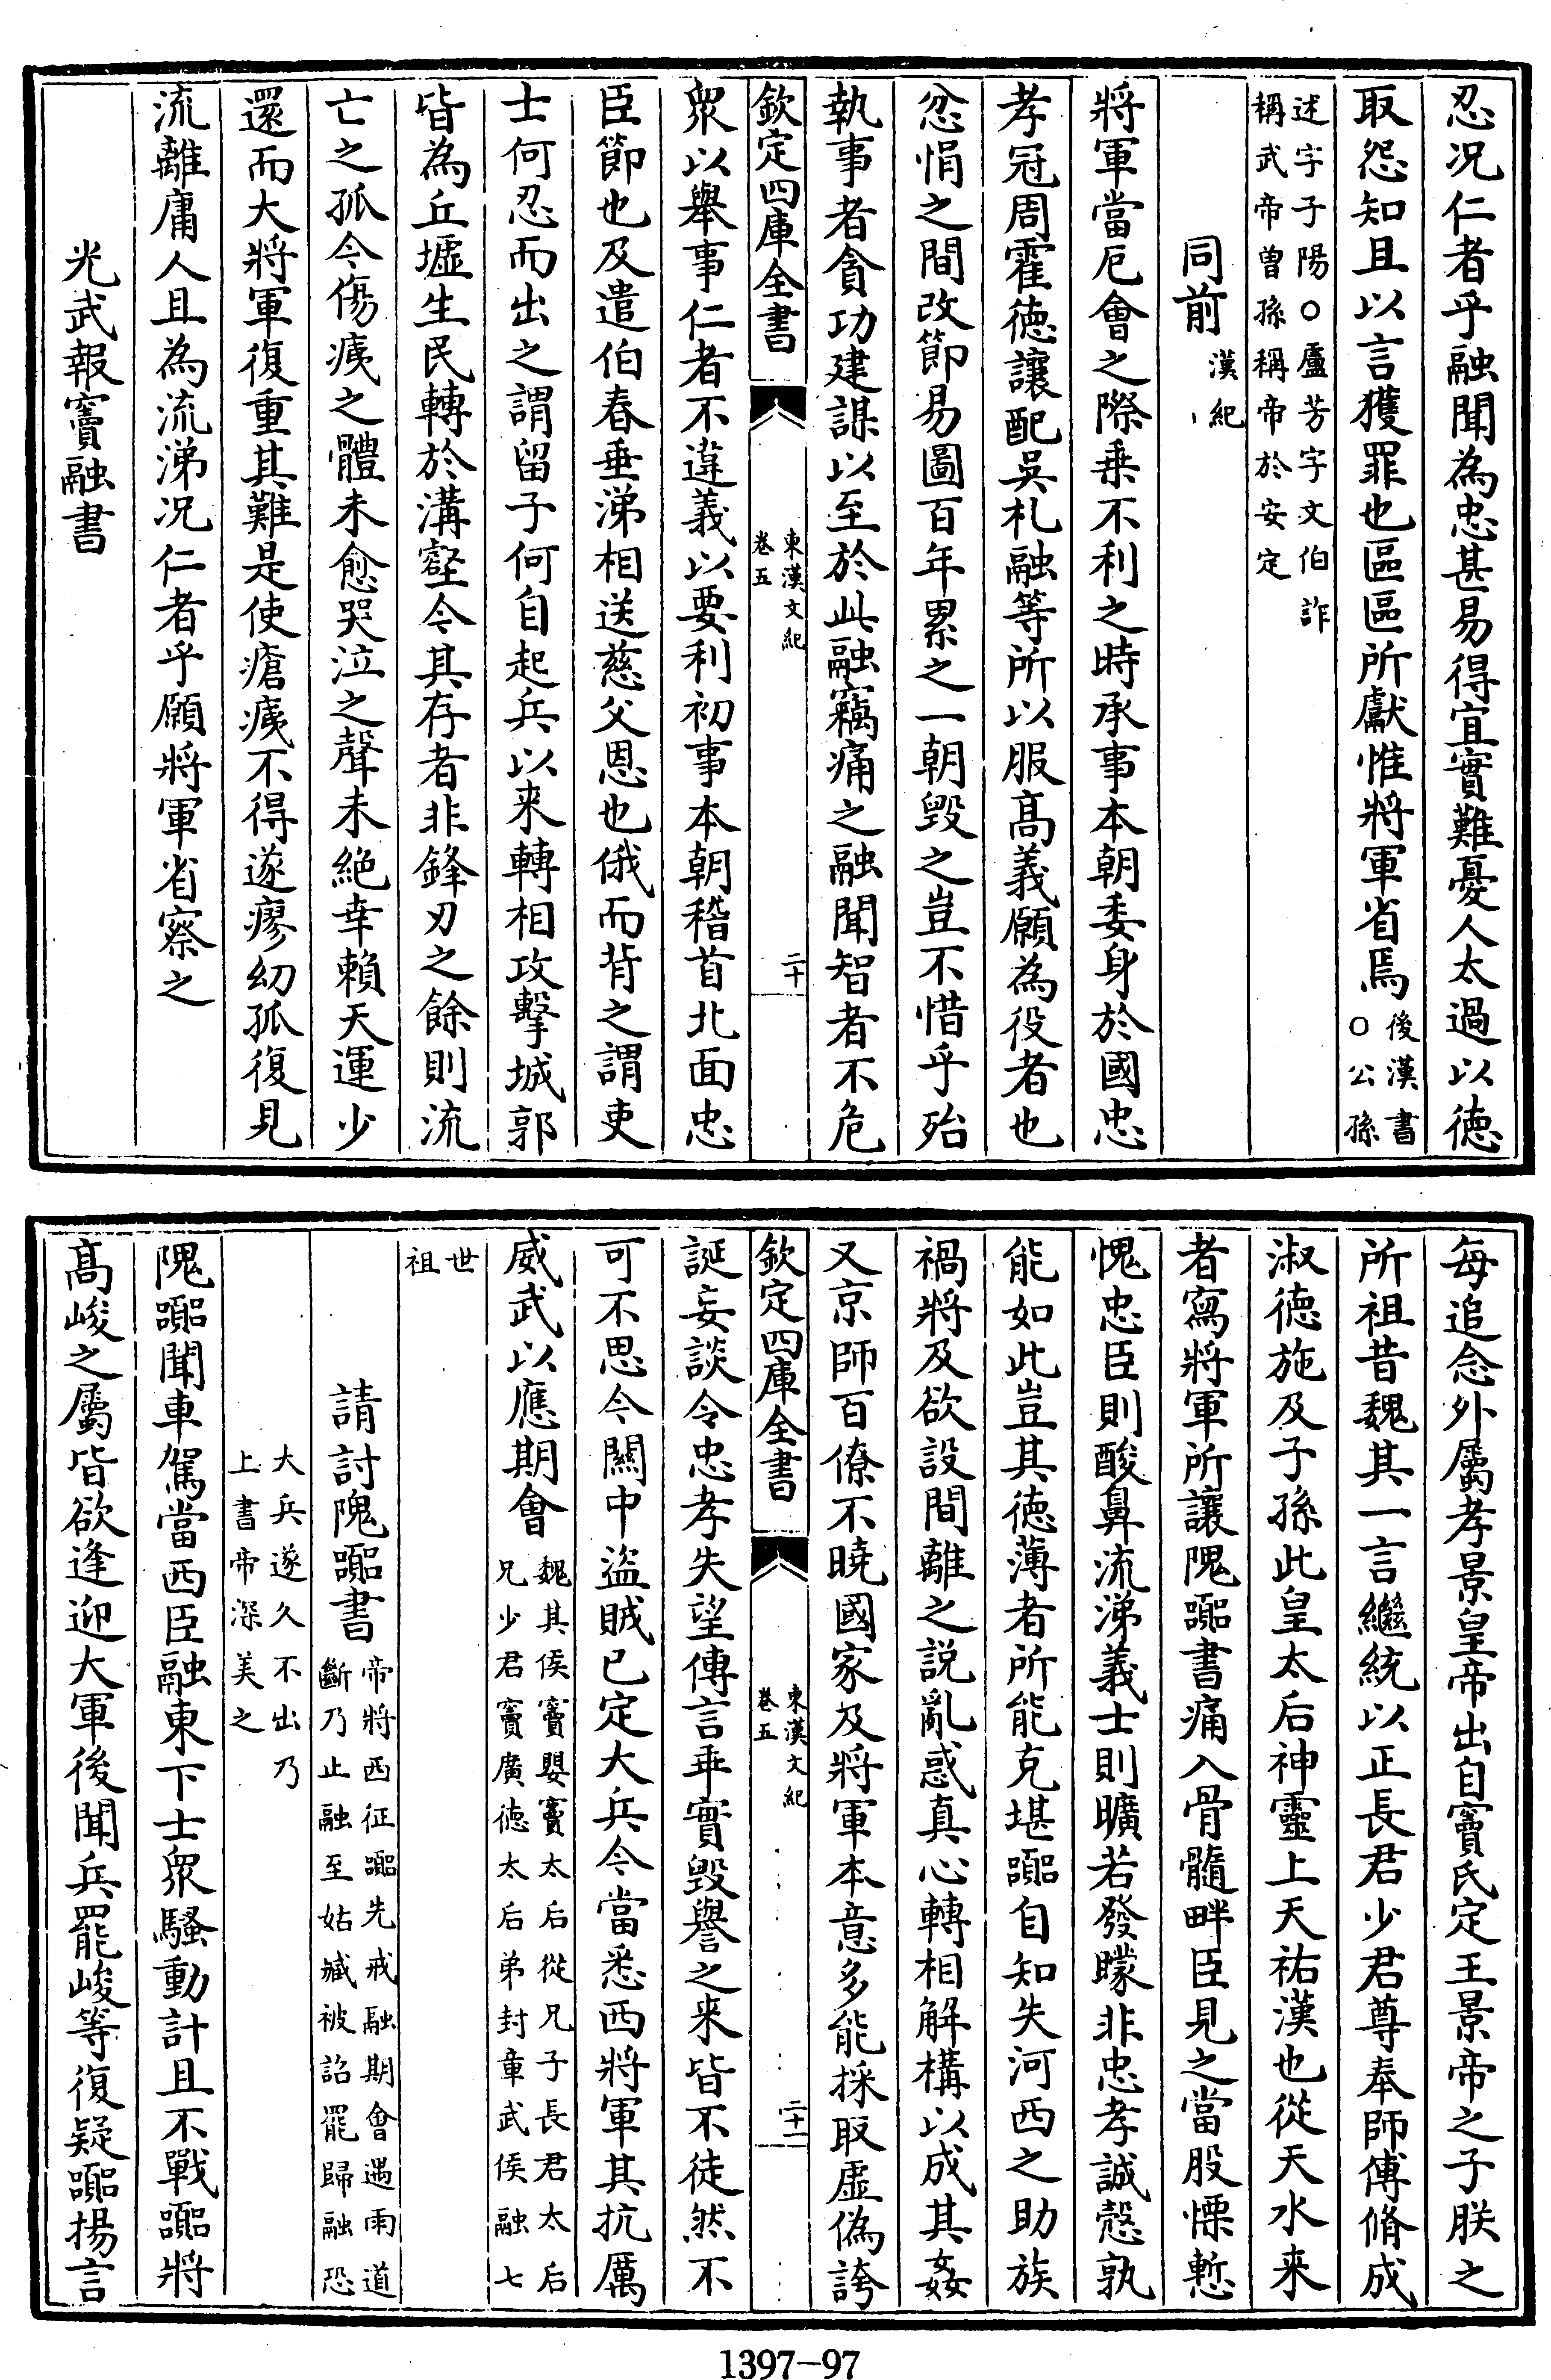 忍况仁者乎融聞為忠甚易得宜實難憂人太過以徳
取怨知且以言獲罪也區區所獻惟將軍省焉後漢書○公孫
述字子陽○盧芳字文伯詐稱武帝曽孫稱帝於安定
同前漢紀
將軍當厄會之際乗不利之時承事本朝委身於國忠
孝冠周霍徳讓配吳札融等所以服髙義願為役者也
忿悁之間改節易圖百年累之一朝毁之豈不惜乎殆
執事者貪功建謀以至於此融竊痛之融聞智者不危
欽定四庫全書
東漢文紀
卷五
二十
衆以舉事仁者不違義以要利初事本朝稽首北面忠
臣節也及遣伯春垂涕相送慈父恩也俄而背之謂吏
士何忍而出之謂留子何自起兵以来轉相攻擊城郭
皆為丘墟生民轉於溝壑今其存者非鋒刃之餘則流
亡之孤今傷痍之體未愈哭泣之聲未絶幸賴天運少
還而大將軍復重其難是使瘡痍不得遂瘳幼孤復見
流離庸人且為流涕况仁者乎願將軍省察之
光武報竇融書
每追念外屬孝景皇帝出自竇氏定王景帝之子朕之
所祖昔魏其一言繼統以正長君少君尊奉師傅脩成
淑徳施及子孫此皇太后神靈上天祐漢也從天水来
者寫將軍所讓隗囂書痛入骨髓畔臣見之當股慄慙
愧忠臣則酸鼻流涕義士則曠若發矇非忠孝誠慤孰
能如此豈其徳薄者所能克堪囂自知失河西之助族
禍將及欲設間離之説亂惑真心轉相解構以成其姦
又京師百僚不曉國家及將軍本意多能採取虛偽誇
欽定四庫全書
東漢文紀
卷五
二十一
誕妄談令忠孝失望傳言乖實毁譽之来皆不徒然不
可不思今關中盜賊已定大兵今當悉西將軍其抗厲
威武以應期會魏其侯竇嬰竇太后從兄子長君太后兄少君竇廣徳太后弟封章武侯融七
世祖
請討隗囂書帝將西征囂先戒融期會遇雨道斷乃止融至姑臧被詔罷歸融恐
大兵遂久不出乃上書帝深美之
隗囂聞車駕當西臣融東下士衆騷動計且不戰囂將
髙峻之屬皆欲逢迎大軍後聞兵罷峻等復疑囂揚言
1397-97